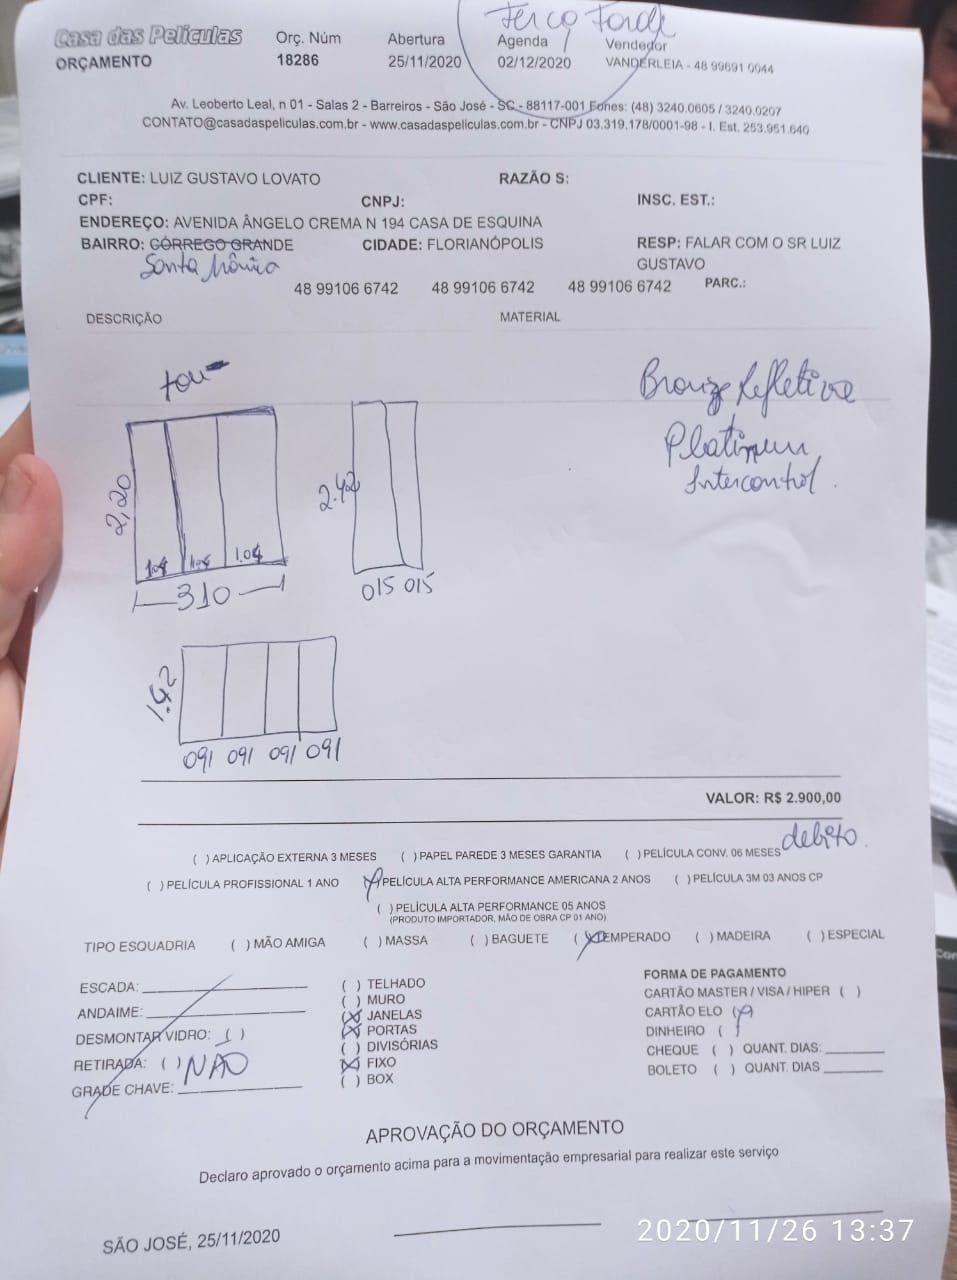 Terça Tarde
Casa das Películas
ORÇAMENTO
Orç. Núm
18286
Abertura
25/11/2020
Agenda
02/12/2020
Vendedor
VANDERLEIA - 48 99691 0044
Av. Leoberto Leal, n 01 - Salas 2 - Barreiros - São José - SC - 88117-001 Fones: (48) 3240.0605 / 3240.0207
CONTATO@casadaspeliculas.com.br - www.casadaspeliculas.com.br - CNPJ 03.319.178/0001-98 - I. Est. 253.951.640
CLIENTE: LUIZ GUSTAVO LOVATO RAZÃO S:
CPF: CNPJ: INSC. EST.:
ENDEREÇO: AVENIDA ÂNGELO CREMA N 194 CASA DE ESQUINA
BAIRRO: CÓRREGO GRANDE CIDADE: FLORIANÓPOLIS RESP: FALAR COM O SR LUIZ
GUSTAVO
Santa Mônica
48 99106 6742 48 99106 6742 48 99106 6742 PARC.:
DESCRIÇÃO MATERIAL
Bronze Refletiva
Platinum
Intercontrol.
2,20
1.04 1.04 1.04
310
2.42
015 015
1.42
091 091 091 091
VALOR: R$ 2.900,00
debito.
( ) APLICAÇÃO EXTERNA 3 MESES ( ) PAPEL PAREDE 3 MESES GARANTIA ( ) PELÍCULA CONV. 06 MESES
( ) PELÍCULA PROFISSIONAL 1 ANO (X) PELÍCULA ALTA PERFORMANCE AMERICANA 2 ANOS ( ) PELÍCULA 3M 03 ANOS CP
( ) PELÍCULA ALTA PERFORMANCE 05 ANOS
(PRODUTO IMPORTADOR, MÃO DE OBRA CP 01 ANO)
TIPO ESQUADRIA ( ) MÃO AMIGA ( ) MASSA ( ) BAGUETE (X) TEMPERADO ( ) MADEIRA ( ) ESPECIAL
ESCADA:
ANDAIME:
DESMONTAR VIDRO: ( )
RETIRADA: ( ) NÃO
GRADE CHAVE:
( ) TELHADO
( ) MURO
(X) JANELAS
(X) PORTAS
( ) DIVISÓRIAS
(X) FIXO
( ) BOX
FORMA DE PAGAMENTO
CARTÃO MASTER / VISA / HIPER ( )
CARTÃO ELO (X)
DINHEIRO ( )
CHEQUE ( ) QUANT. DIAS:
BOLETO ( ) QUANT. DIAS
APROVAÇÃO DO ORÇAMENTO
Declaro aprovado o orçamento acima para a movimentação empresarial para realizar este serviço
SÃO JOSÉ, 25/11/2020
2020/11/26 13:37